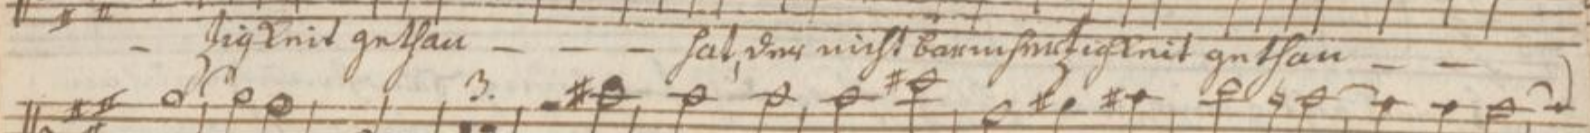 - tzigkeit gethan - - - hat, der nicht barmhertzigkeit gethan - -
3.